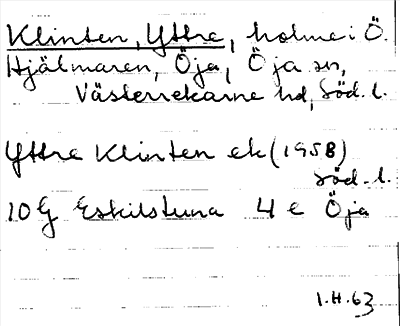 Klinten, Yttre, holme i Ö.
Hjälmaren, Öja, Öja sn,
Västerrekarne hd, Söd. l.
Yttre Klinten ek (1958)
Söd. l.
10G Eskilstuna 4 e Öja
I.H. 63